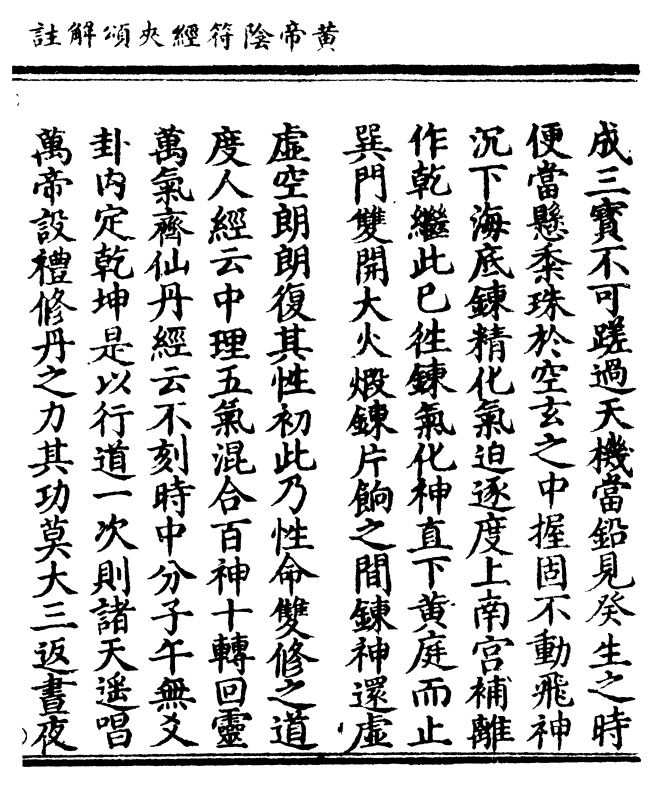 黃帝陰符經夾頌解註
成三寶不可蹉過天機當鉛見癸生之時
便當懸黍珠於空玄之中握固不動飛神
沉下海底鍊精化氣迫逐度上南宮補離
作乾繼此已徃鍊氣化神直下黃庭而止
巽門雙開大火煅鍊片餉之間鍊神還虛
虛空朗朗復其性初此乃性命雙修之道
度人經云中理五氣混合百神十轉回靈
萬氣齊仙丹經云不刻時中分子午無爻
卦內定乾坤是以行道一次則諸天遥唱
萬帝設禮修丹之力其功莫大三返晝夜